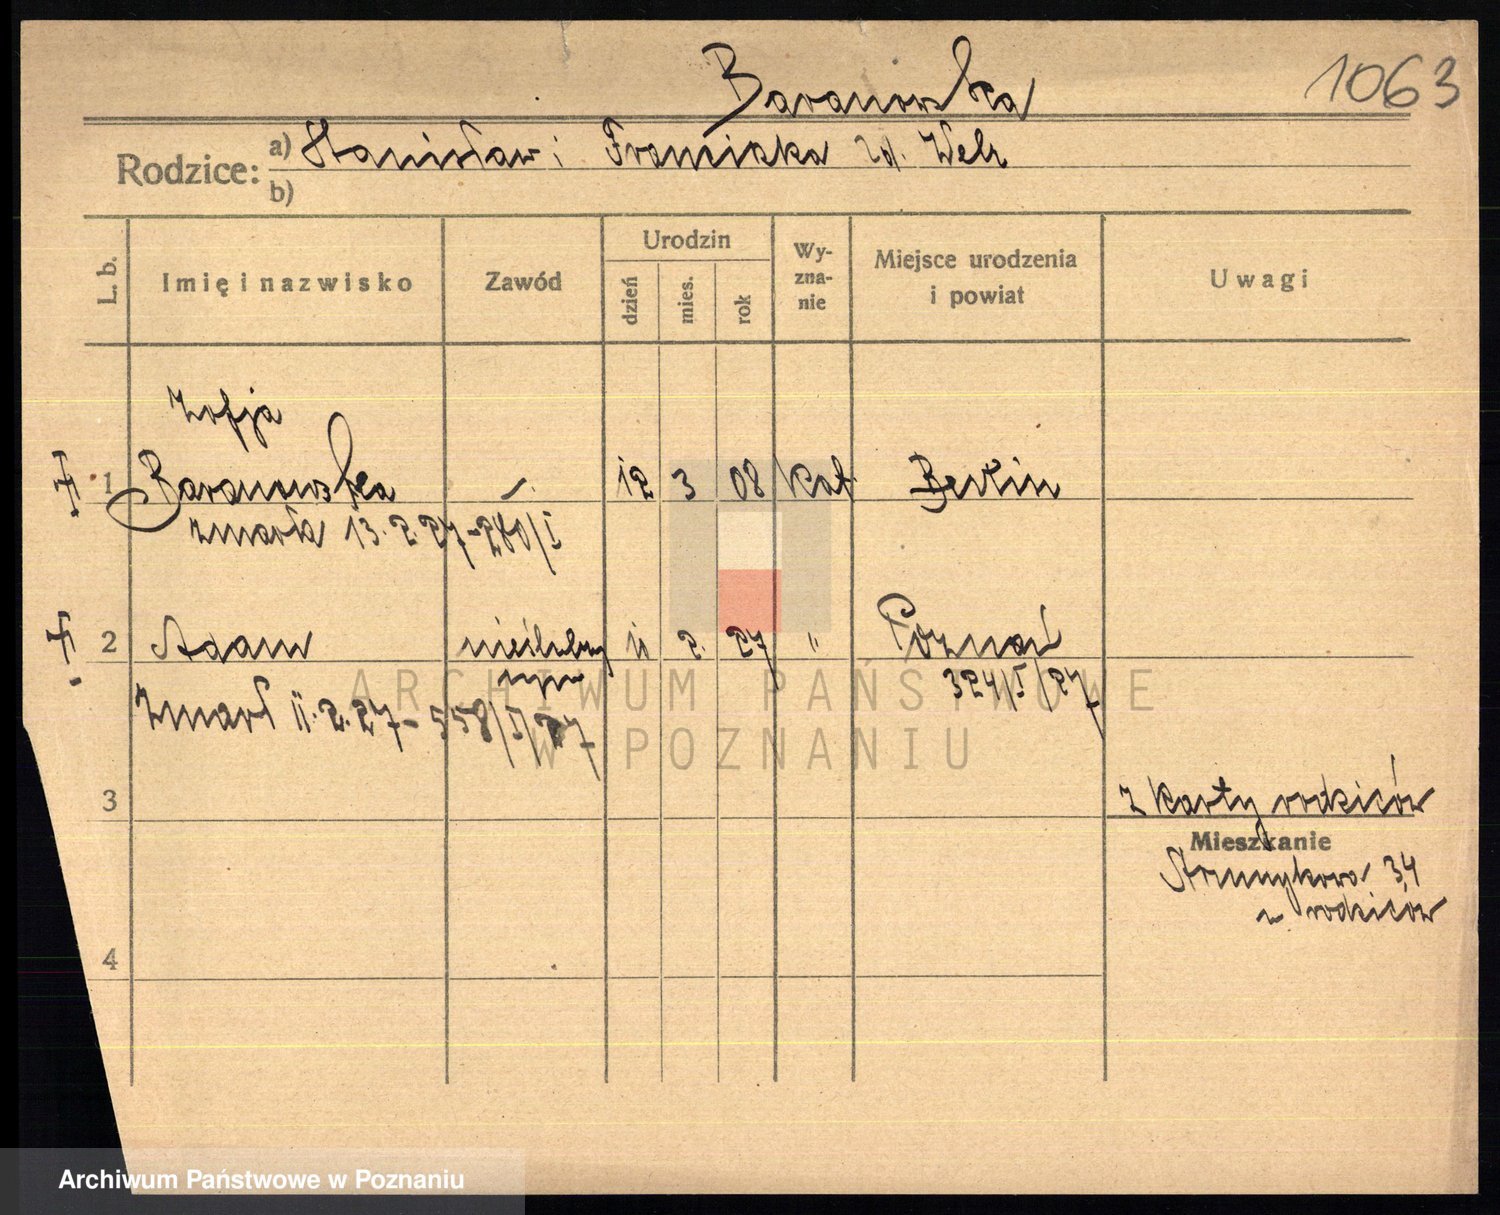 1063
Baranowska
Rodzice: a) Stanisław i Franciszka zd. Welz
b)
L. b.
Imię i nazwisko
Zawód
Urodzin
dzień
mies.
rok
Wy-
zna-
nie
Miejsce urodzenia
i powiat
Uwagi
Zofja
1 Baranowska 12 3 08 Kat. Berlin
zmarła 13.2.27-280/I
2 Adam nieślubny 11 2. 27 " Poznań
syn 324/I/27
Zmarł 11.2.27-558/I/27
3
Z Karty rodziców
Mieszkanie
3,4
u rodziców
4
ARCHIWUM PAŃSTWOWE
W POZNANIU
Archiwum Państwowe w Poznaniu